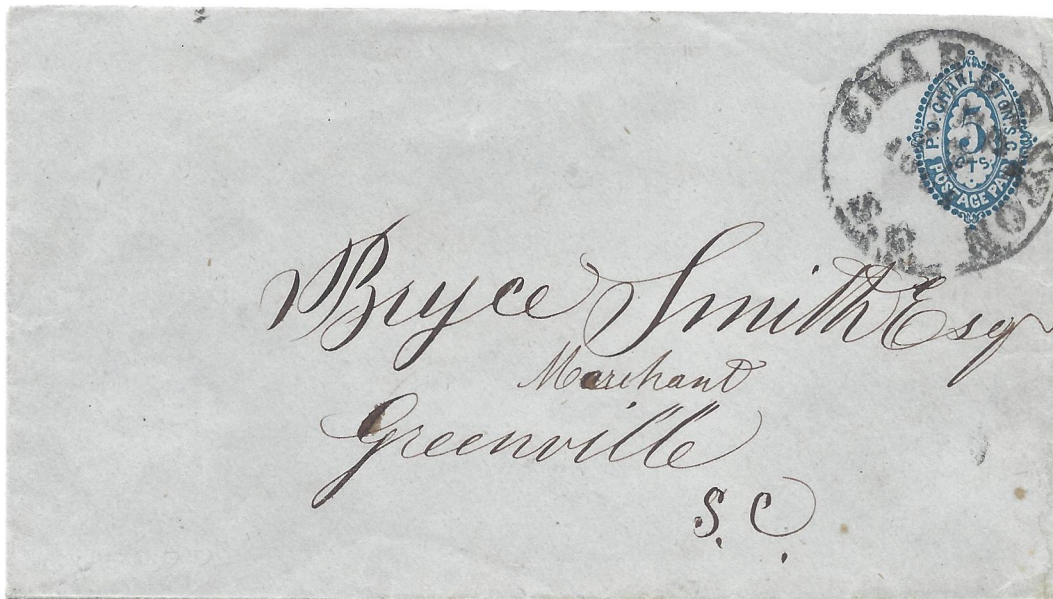 CHARLESTON
P.O. CHARLESTON, S.C.
5
CTS.
POSTAGE PAID
Bryce Smith Esq
Merchant
Greenville
S. C.